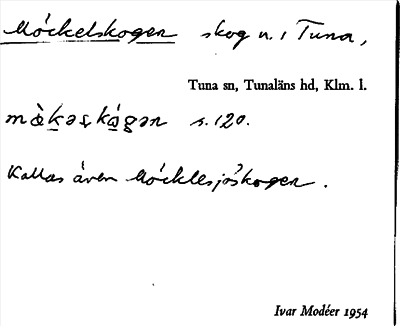 Möckelskogen skog n. i Tuna,
Tuna sn, Tunaläns hd, Klm. l.
s. 120.
Kallas även Möcklesjöskogen.
Ivar Modéer 1954